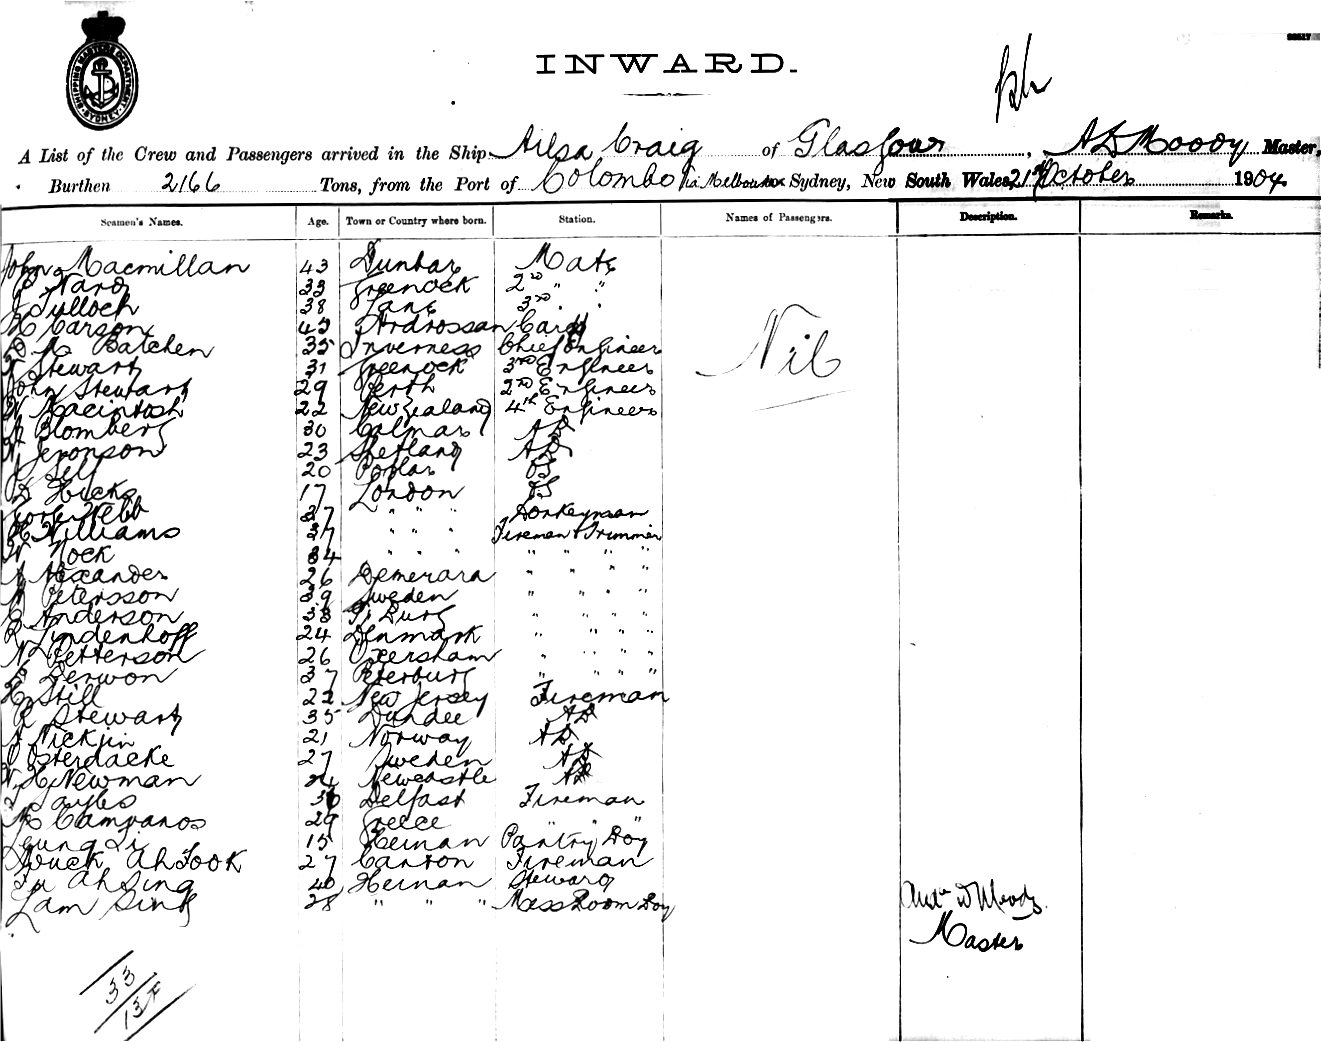 SHIPPING MASTERS DEPARTMENT SYDNEY
INWARD.
A List of the Crew and Passengers arrived in the Ship Ailsa Craig of Glasgow, A D Moody Master,
Burthen 2166 Tons, from the Port of Colombo via Melbourne Sydney, New South Wales, 21st October 1904
Seamen's Names. Age. Town or Country where born. Station. Names of Passengers. Description. Remarks.
John Macmillan 43 Dunbar Mate
Ward 33 Greenock 2nd " "
J Tulloch 38 Lane 3rd " "
Carson 43 Ardrossan Carp
Batchen 35 Inverness Chief Engineer
Stewart 31 Greenock 3rd Engineer
Nil
John Stewart 29 Perth 2nd Engineer
Macintosh 22 New Zealand 4th Engineer
Blomberg 30 Calmar AB
Aronson 23 Shetland AB
Self 20 Poplar OS
Hicks 17 London OS
Webb 37 " " " Donkeyman
Williams 37 " " " Fireman & Trimmer
Nock 34 " " " " " " "
Alexander 26 Demerara " " " "
Petersson 39 Sweden " " " "
Anderson 38 " " " "
Lindenhoff 24 Denmark " " " "
Petterson 26 " " " "
Derwon 37 Peterburg " " " "
Still 22 New Jersey Fireman
R Stewart 35 Dundee AB
Nicklin 21 Norway AB
Osterdacke 27 Sweden AB
Newman 24 Newcastle AB
Sayles 30 Belfast Fireman
Campanos 29 Greece " "
Leung Li 15 Heinan Pantry Boy
Ah Fook 27 Canton Fireman
Ah Sing 40 Heinan Steward
Lam Sing 28 " " " Mess Room Boy
Andw D Moody
Master
33
13F